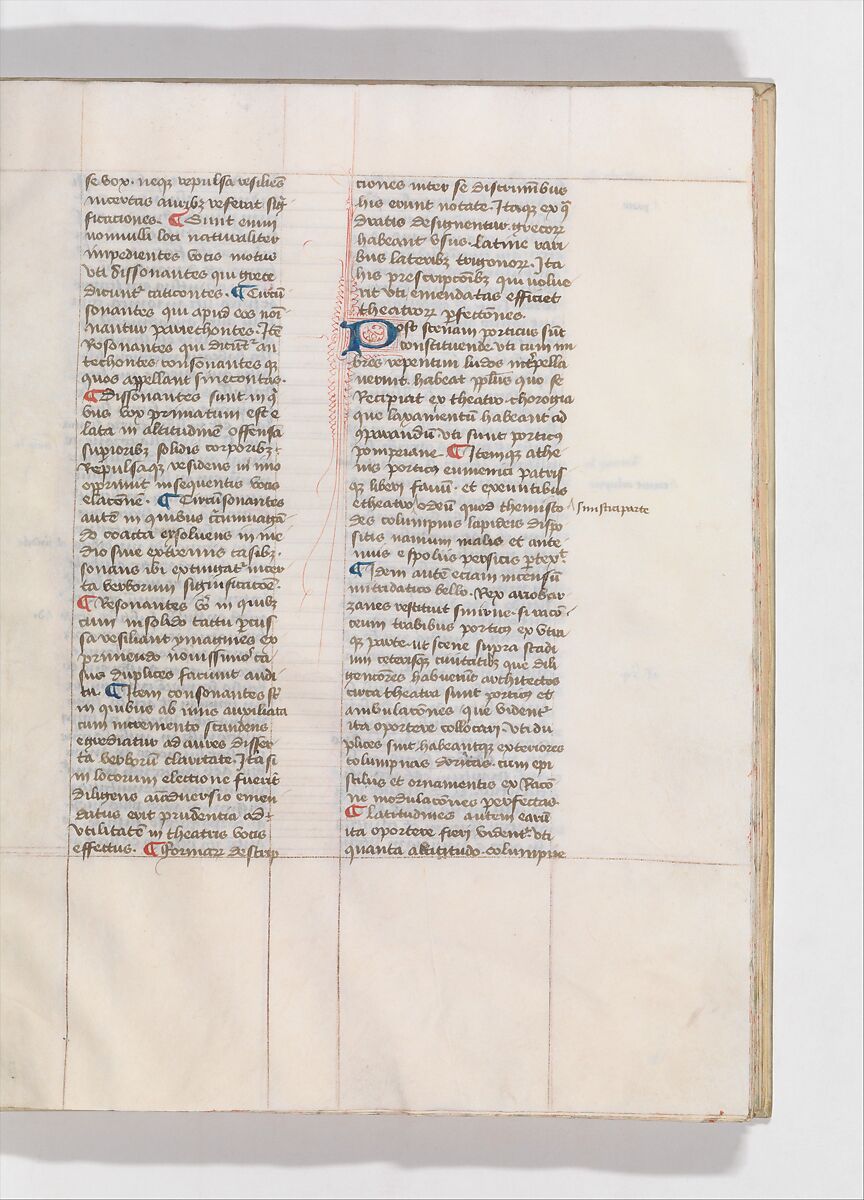 se vox. neqz repulsa resiliẽs
incertas auribz referat sig̃
ficationes. ¶ Sunt enim
nonnulli loci naturaliter
impedientes vocis motus
vti dissonantes qui grece
dicunt᷑ caticontes. ¶ Circũ
sonantes qui apud eos noĩ
nantur pariethontes. Itẽ
Rosonantes qui dicũt᷑ an
techontes consonantes qz
quos appellant sinecontas.
¶ Dissonantes sunt in q̃
bus vox prima tum est e
lata in altitudinẽ offensa
supioribz solidis corporibz.
Repulsaqz residens in imo
opprimit insequentis vocis
elacõnẽ. ¶ Circũsonantes
autẽ in quibus c̃cumuagã
do coacta exsoluens in me
dio sine extremis casibz.
sonans ibi extingat᷑ incer
ta verborum significacõe.
¶ Resonantes vº in quibz
cum insolido tactu percus
sa resiliant ymagines ex
primendo nouissimos ca
sus duplices faciunt audi
tu. ¶ Item consonantes st̃
in quibus ab imis auxiliata
cum incremento scandens
egrediatur ad aures disser
ta verborũ claritate. Ita si
in locorum electione fuerit
diligens aiaduersio emen
datus erit prudentia ad
vtilitatẽ in theatris vocis
effectus. ¶ Formarꝝ descrip
ciones inter se discriminibus
his erunt notate. Itaqz ex q̃
dratis designentur grecorꝝ
habeant vsus. latine pari
bus lateribz trigonorꝝ. Ita
his prescripcõibz qui volue
rit vti emendatas efficiet
theatrorꝝ pfectiones.
Post scenam porticus sũt
constituende vti cum im
bres repentini ludos int̃pella
uerint. habeat pplũs quo se
Recipiat ex theatro. choragia
que laxamentũ habeant ad
cparandũ vti sunt porticus
pompeiane. ¶ Itemqz athe
nis porticus eumenici patris
qz liberi fanũ. et exeuntibus
e theatro odeũ quod themisto
des columpnis lapideis dispo
sitis nauium malis et ante
nnis e spolijs persicis ptext᷑.
¶ Idem autẽ eciam incensũ
mitridatico bello. Rex ariobar
zanes restituit smirne. si racõ
ceum trabibus porticus ex vtra
qz parte. ut scene supra stadi
um ceterisqz ciuitatibz que dili
gentores habuerũt architectos
circa theatra sunt porticus et
ambulacõnes que vident᷑
ita oportere collocari. vti du
plices sint. habeantqz exteriores
columpnas doricas. cum epi
stilus et ornamentis ex Racõ
ne modulacõnes perfectas.
¶ Latitudines autem earũ
ita oportere fieri vident᷑. vti
quanta altitudo columpne
sinistra parte